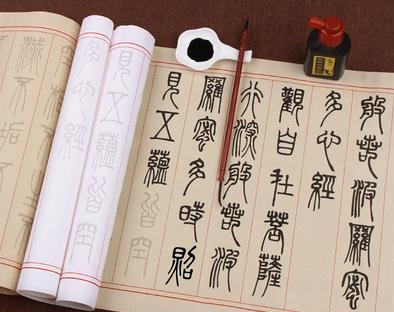 般若波羅蜜
多心經
觀自在菩薩
行深般若波
羅蜜多時照
見五蘊皆空
見五蘊皆空
多心經
滅不垢不